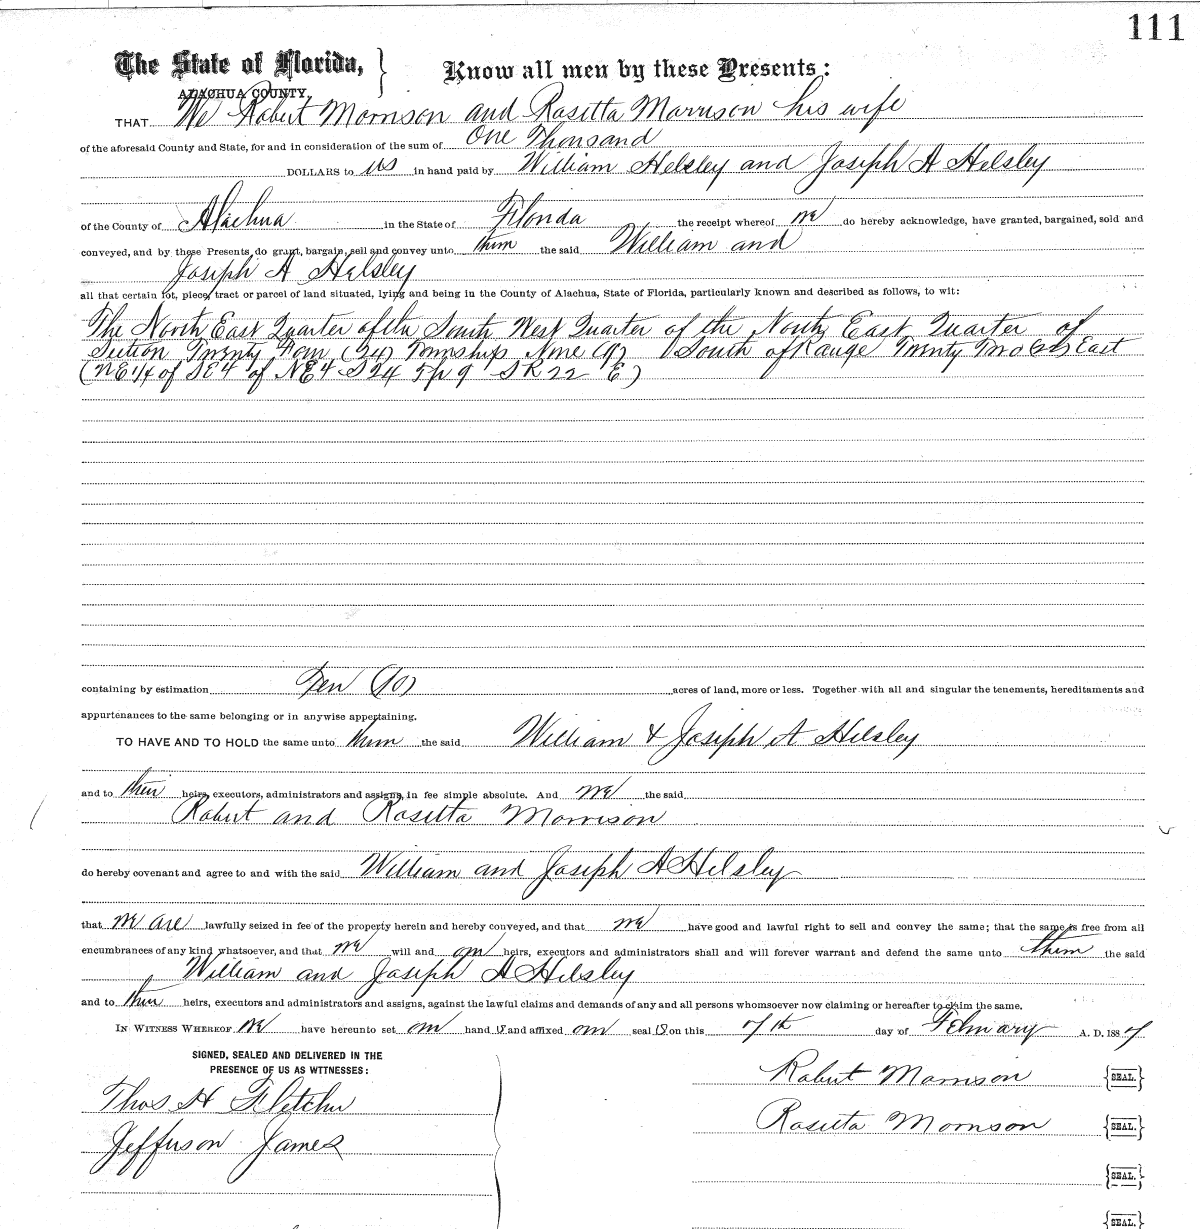 111
The State of Florida, } Know all men by these Presents:
ALACHUA COUNTY.
THAT We Robert Morrison and Rosetta Morrison his wife
of the aforesaid County and State, for and in consideration of the sum of One Thousand
DOLLARS to us in hand paid by William Helsley and Joseph A Helsley
of the County of Alachua in the State of Florida the receipt whereof we do hereby acknowledge, have granted, bargained, sold and
conveyed, and by these Presents do grant, bargain, sell and convey unto them the said William and
Joseph A Helsley
all that certain lot, piece, tract or parcel of land situated, lying and being in the County of Alachua, State of Florida, particularly known and described as follows, to wit:
The North East Quarter of the South West Quarter of the North East Quarter of
Section Twenty Four (24) Township Nine (9) South of Range Twenty Two (22) East
(NE1/4 of SE4 of NE4 S24 Tp 9 S R 22 E)
containing by estimation Ten (10) acres of land, more or less. Together with all and singular the tenements, hereditaments and
appurtenances to the same belonging or in anywise appertaining.
TO HAVE AND TO HOLD the same unto them the said William & Joseph A Helsley
and to their heirs, executors, administrators and assigns, in fee simple absolute. And we the said
Robert and Rosetta Morrison
do hereby covenant and agree to and with the said William and Joseph A Helsley
that we are lawfully seized in fee of the property herein and hereby conveyed, and that we have good and lawful right to sell and convey the same; that the same is free from all
encumbrances of any kind whatsoever, and that we will and our heirs, executors and administrators shall and will forever warrant and defend the same unto them the said
William and Joseph A Helsley
and to their heirs, executors and administrators and assigns, against the lawful claims and demands of any and all persons whomsoever now claiming or hereafter to claim the same.
IN WITNESS WHEREOF we have hereunto set our hand s and affixed our seal s on this 7th day of February A. D. 1887
SIGNED, SEALED AND DELIVERED IN THE
PRESENCE OF US AS WITNESSES:
Robert Morrison {SEAL.}
Thos H Fletcher
Rosetta Morrison {SEAL.}
Jefferson James
{SEAL.}
{SEAL.}